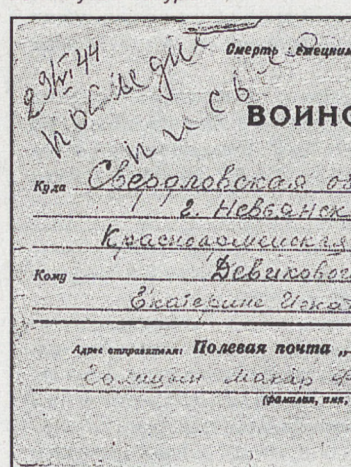 29/VI 44
последне
письм
Смерть немецким
ВОИНС
Куда Свердловская об
г. Невьянск
Красноармейская
Кому
Екатерине Игнат
Адрес отправителя: Полевая почта „
Голицын Макар Ф
(фамилия, имя,